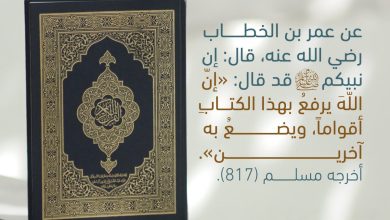 عن عمر بن الخطاب
رضي الله عنه، قال: إن
نبيكم ﷺ قد قال: «إنّ
اللّهَ يرفعُ بهذا الكتابِ
أقواماً، ويضعُ به
آخرين».
أخرجه مسلم (817).
القرآن الكريم